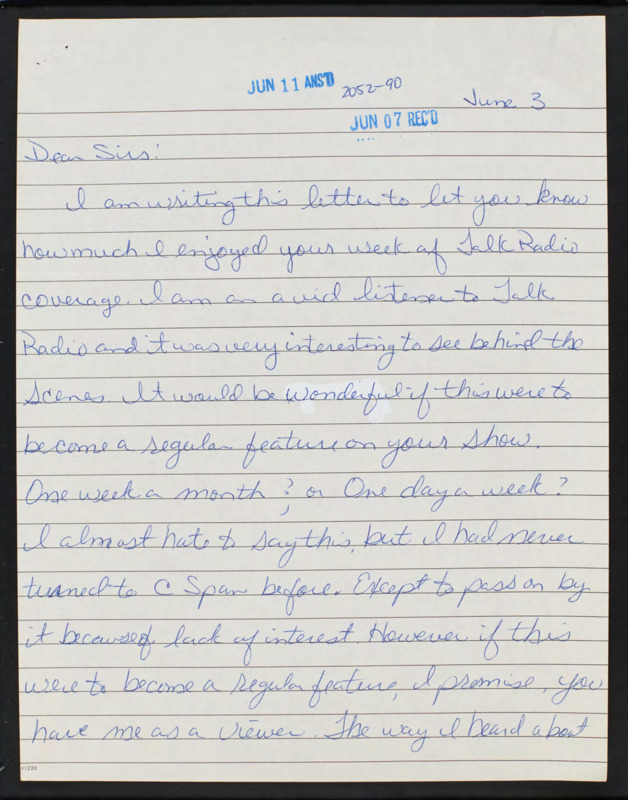 JUN 11 ANS'D 2052-90 June 3
JUN 07 REC'D
Dear Sirs:
I am writing this letter to let you know
how much I enjoyed your week of Talk Radio
coverage. I am an avid listener to Talk
Radio and it was very interesting to see behind the
scenes. It would be wonderful if this were to
become a regular feature on your show.
One week a month? or One day a week?
I almost hate to say this, but I had never
turned to C Span before. Except to pass on by
it because of lack of interest. However if this
were to become a regular feature, I promise, you
have me as a viewer. The way I heard about
41236